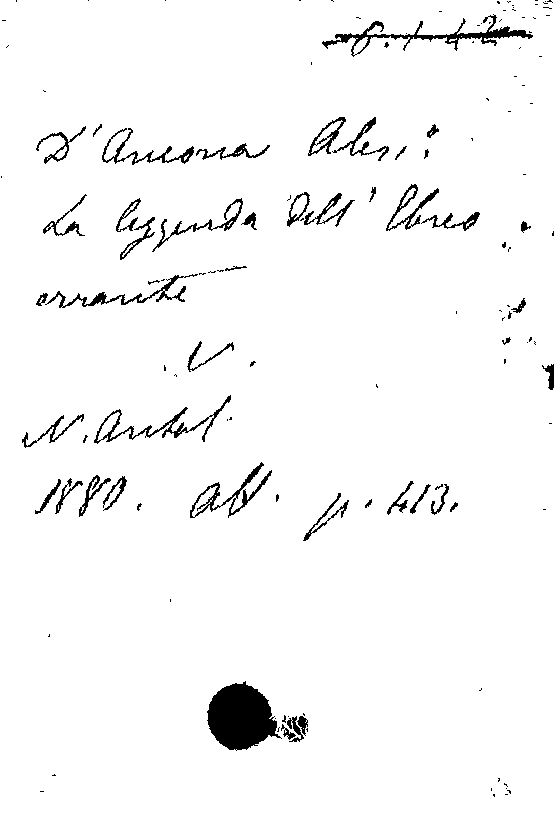 D'Ancona Aless:
La leggenda dell' Ebreo
errante
V.
N. Antol.
1880. p. 413.